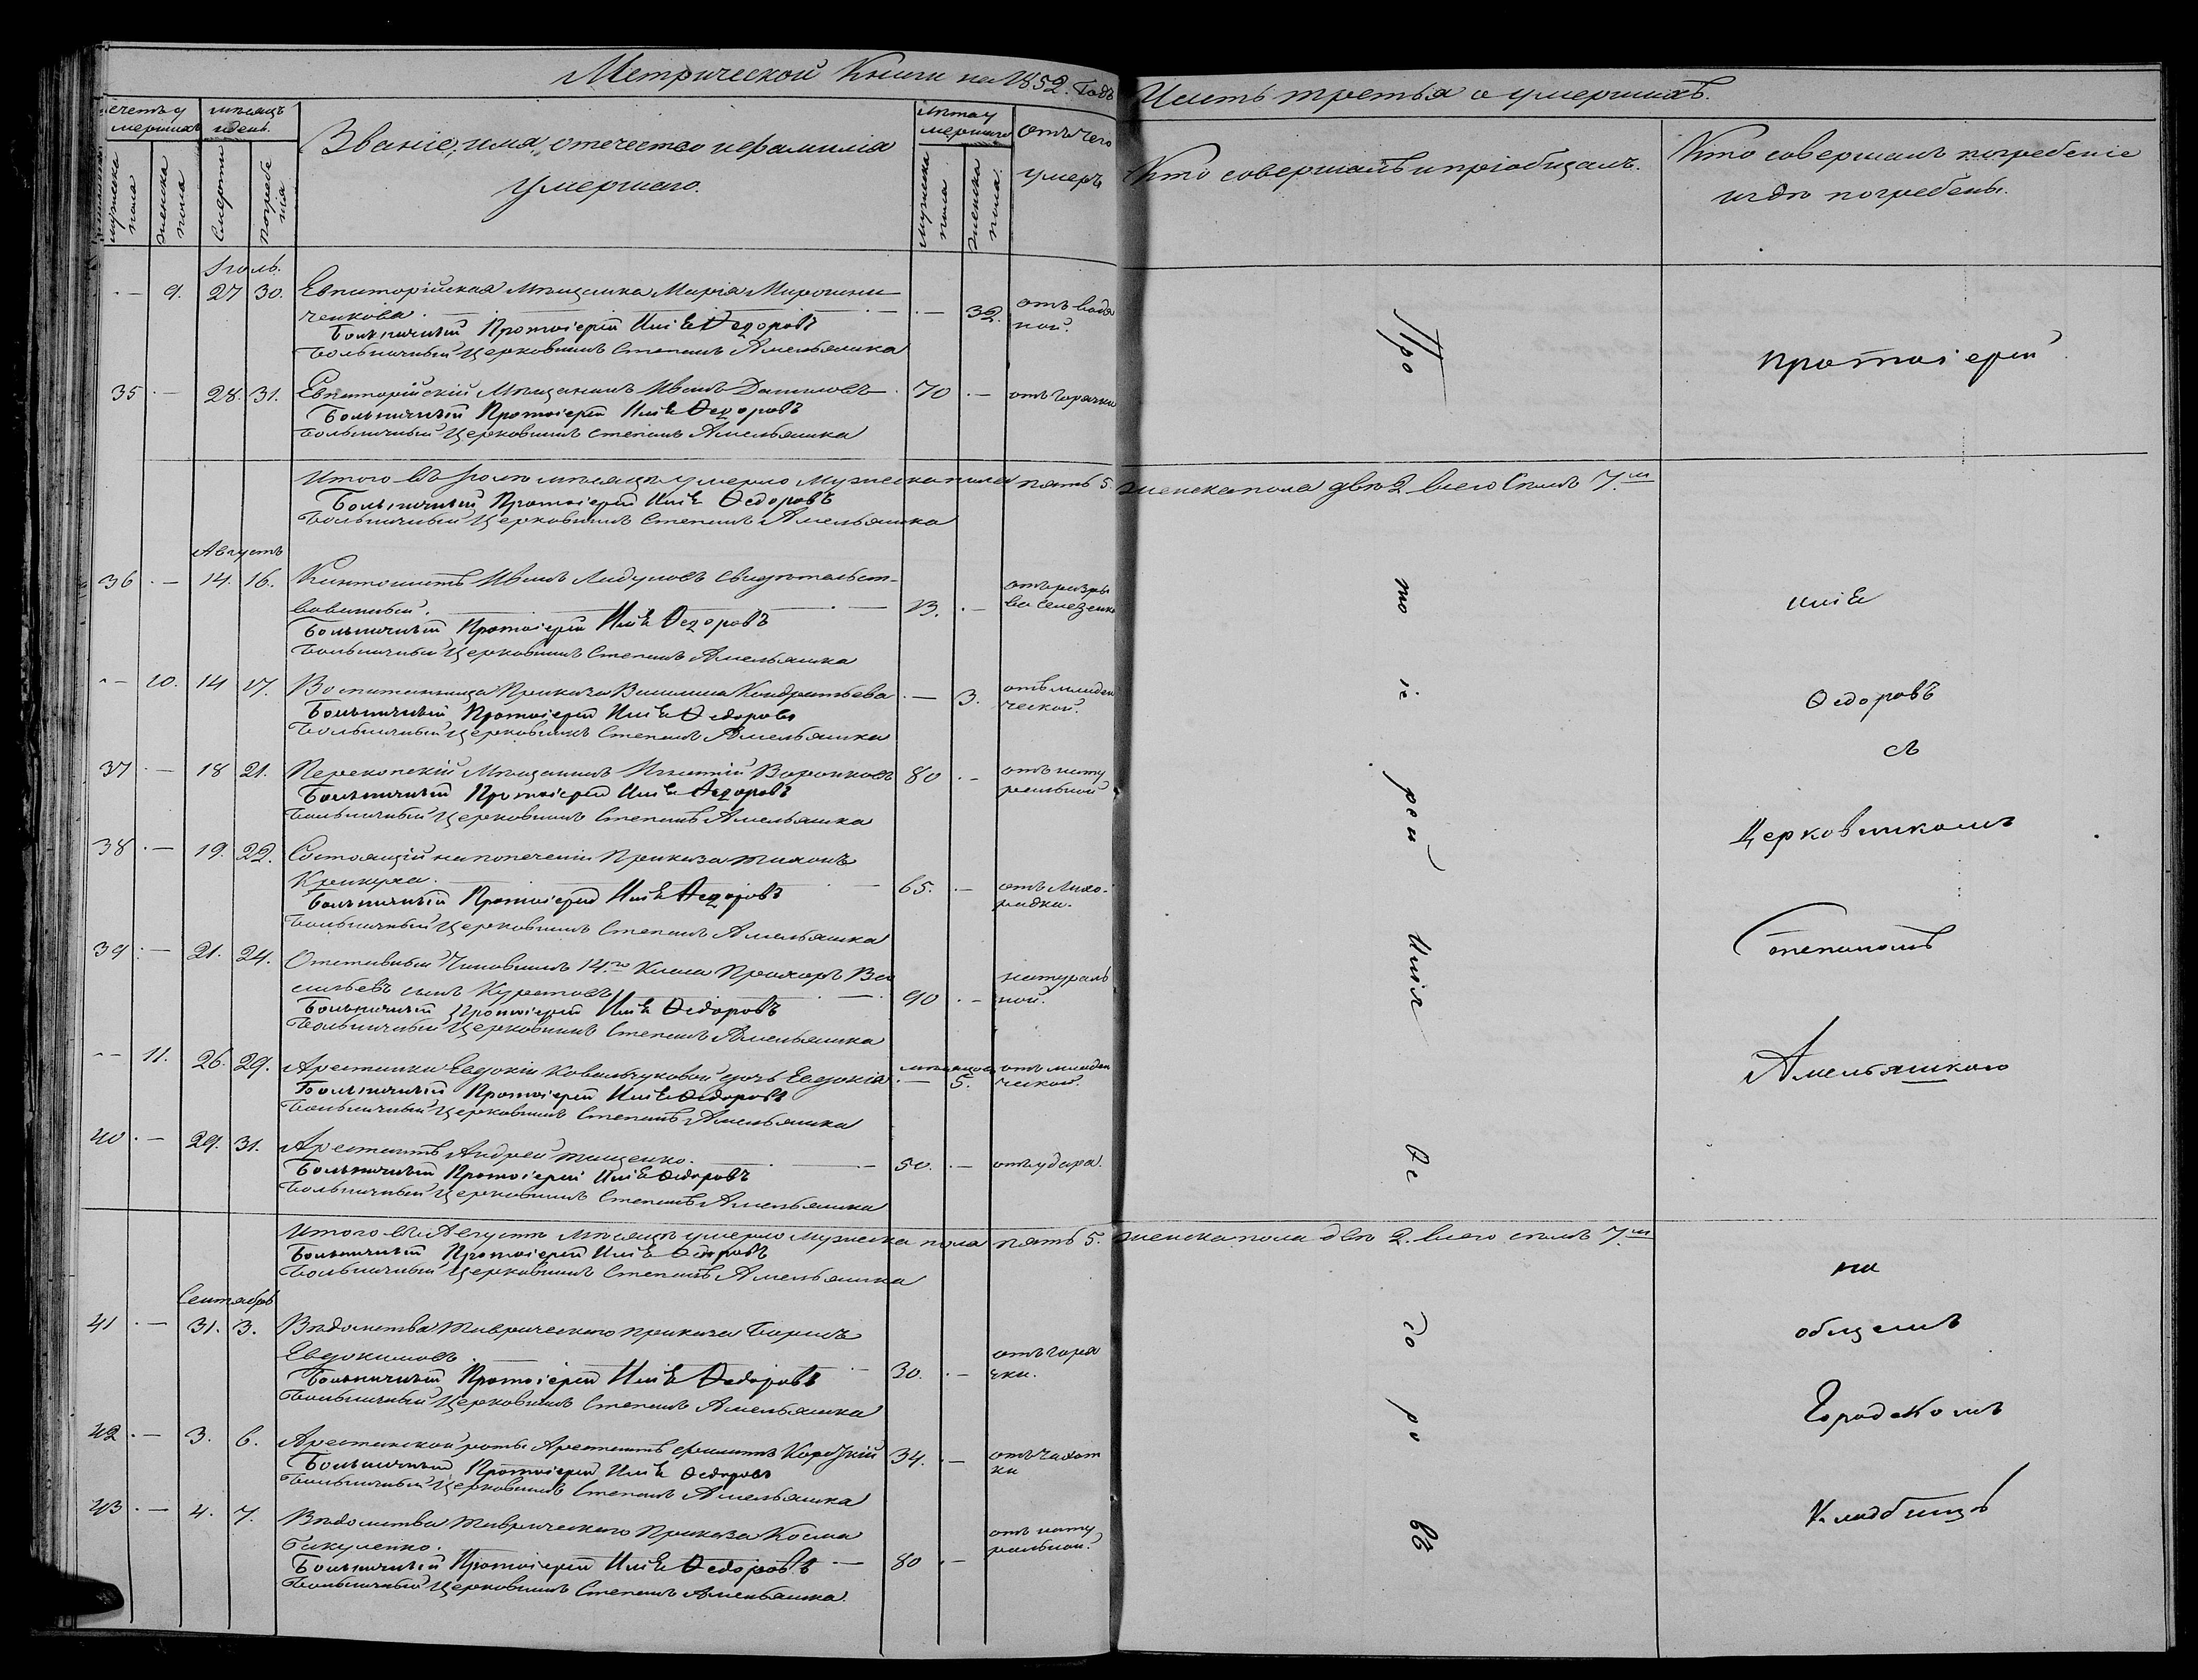 Метрической Книги на 1852. Годъ
Часть третья о умершихъ.
Счетъ умершихъ
мѣсяцъ и день.
Званіе, имя, отечество и фамилія
умершаго.
Лѣта умершаго
отъ чего
умеръ
Кто совершалъ и пріобщалъ.
Кто совершалъ погребеніе
и гдѣ погребены.
мужеска пола
женска пола
Смерти
погребенія
мужеска пола
женска пола
Іюль.
— 9. 27 30. Евпаторійская Мѣщанка Марія Мирошни-
ченкова. — 32. отъ водя
ной.
Больничный Протоіерей Илія Ѳедоровъ
Больничный Церковникъ Степанъ Амельяшка
35 — 28. 31. Евпаторійскій Мѣщанинъ Иванъ Даниловъ 70 — отъ горячки
Больничный Протоіерей Илія Ѳедоровъ
Больничный Церковникъ Степанъ Амельяшка
Итого въ Іюлѣ мѣсяцѣ умерло Мужеска пола пять 5. женска пола двѣ 2 всего семь 7.
Больничный Протоіерей Илія Ѳедоровъ
Больничный Церковникъ Степанъ Амельяшка
Августъ
36 — 14. 16. Кантонистъ Иванъ свидѣтельст-
вованный. 13. — отъ разры
ва селезенки
Больничный Протоіерей Илія Ѳедоровъ
Больничный Церковникъ Степанъ Амельяшка
— 10. 14 17. Воспитанница Приказа Василиса Кондратьева — 3. отъ младен
ческой.
Больничный Протоіерей Илія Ѳедоровъ
Больничный Церковникъ Степанъ Амельяшка
37 — 18 21. Перекопскій Мѣщанинъ Игнатій Воронковъ 80 — отъ нату
ральной
Больничный Протоіерей Илія Ѳедоровъ
Больничный Церковникъ Степанъ Амельяшка
38 — 19. 22. Состоящій на попеченіи Приказа Тихонъ
65. — отъ Лихо-
радки.
Больничный Протоіерей Илія Ѳедоровъ
Больничный Церковникъ Степанъ Амельяшка
39 — 21. 24. Отставный Чиновникъ 14.го Класа Прохоръ Ва
сильевъ сынъ 90 — натураль
ной.
Больничный Протоіерей Илія Ѳедоровъ
Больничный Церковникъ Степанъ Амельяшка
— 11. 26. 29. Арестанки Евдокіи Ковальчуковой дочь Евдокія — мѣсяцовъ 5. отъ младен
ческой.
Больничный Протоіерей Илія Ѳедоровъ
Больничный Церковникъ Степанъ Амельяшка
40 — 29. 31. Арестантъ Андрей Тищенко. 50. — отъ удара.
Больничный Протоіерей Илія Ѳедоровъ
Больничный Церковникъ Степанъ Амельяшка
Итого въ Августѣ Мѣсяцѣ умерло Мужеска пола пять 5. женска пола двѣ 2. всего семь 7.
Больничный Протоіерей Илія Ѳедоровъ
Больничный Церковникъ Степанъ Амельяшка
Сентябрь
41 — 31. 3. Вѣдомства Таврическаго приказа Борисъ
Евдокимовъ 30. — отъ горя
чки.
Больничный Протоіерей Илія Ѳедоровъ
Больничный Церковникъ Степанъ Амельяшка
42 — 3. 6. Арестанской роты Арестантъ Филиппъ 34. — отъ чахот
ки
Больничный Протоіерей Илія Ѳедоровъ
Больничный Церковникъ Степанъ Амельяшка
43 — 4. 7. Вѣдомства Таврическаго Приказа Косма
Бакуленко. 80 — отъ нату
ральной.
Больничный Протоіерей Илія Ѳедоровъ
Больничный Церковникъ Степанъ Амельяшка
Про
то
іе
рей
Илія
Ѳе
до
ро
въ
Протоіерей
Илія
Ѳедоровъ
съ
Церковникомъ
Степаномъ
Амельяшкою
на
общемъ
Городскомъ
Кладбищѣ